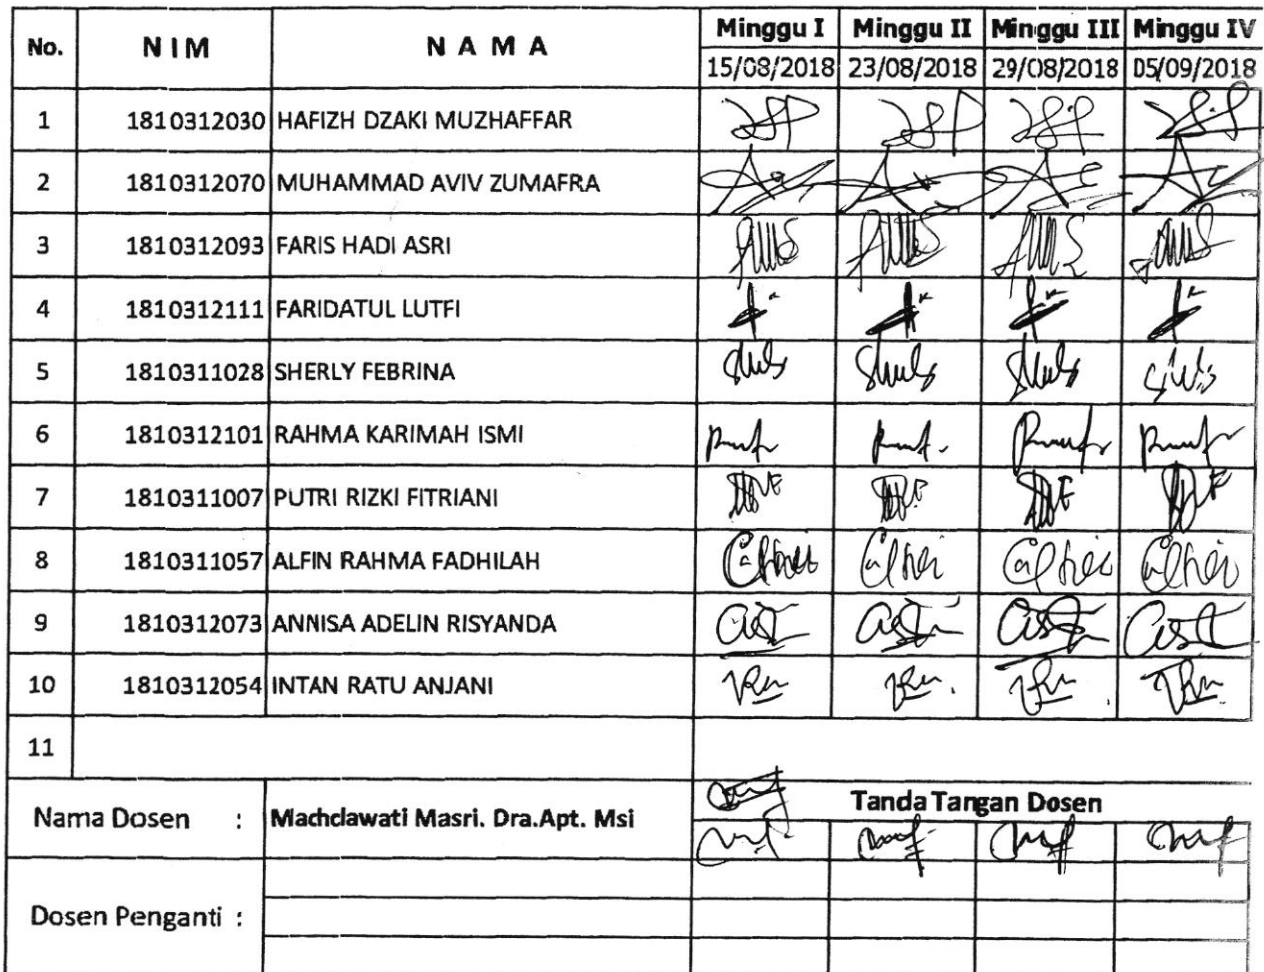 No. NIM N A M A Minggu I Minggu II Minggu III Minggu IV
15/08/2018 23/08/2018 29/08/2018 05/09/2018
1 1810312030 HAFIZH DZAKI MUZHAFFAR
2 1810312070 MUHAMMAD AVIV ZUMAFRA
3 1810312093 FARIS HADI ASRI
4 1810312111 FARIDATUL LUTFI
5 1810311028 SHERLY FEBRINA
6 1810312101 RAHMA KARIMAH ISMI
7 1810311007 PUTRI RIZKI FITRIANI
8 1810311057 ALFIN RAHMA FADHILAH
9 1810312073 ANNISA ADELIN RISYANDA
10 1810312054 INTAN RATU ANJANI
11
Nama Dosen : Machdawati Masri. Dra.Apt. Msi Tanda Tangan Dosen
Dosen Penganti :